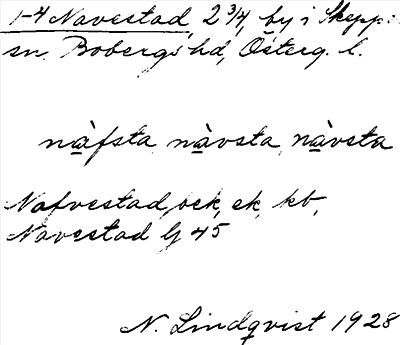 1-4 Navestad, 2 3/4, by i Skepp:
sn, Bobergs hd, Österg. l.
nàfsta, nàvsta, nàvsta
Nafvestad, ock, ek, kb,
Navestad GJ 45
N. Lindqvist 1928